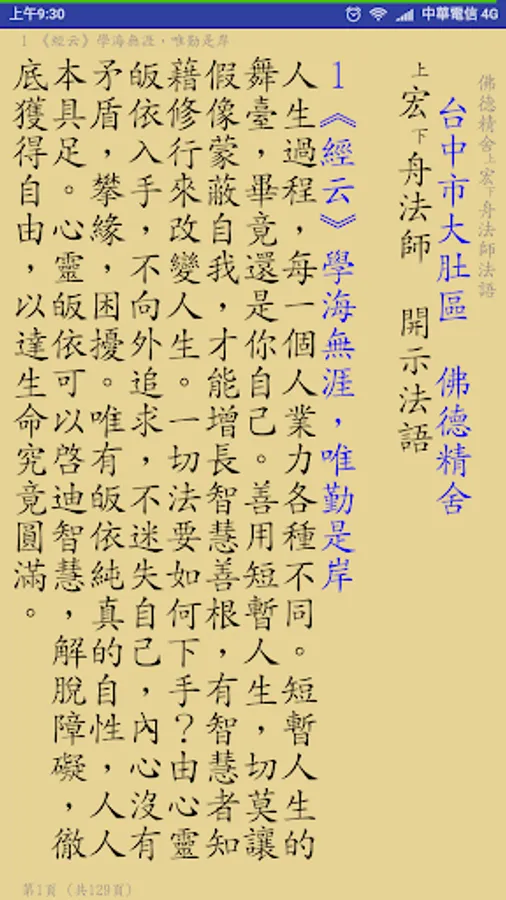 上午9:30 中華電信 4G
1 《經云》學海無涯，唯勤是岸
佛德精舍上宏下舟法師法語
台中市大肚區 佛德精舍
上宏下舟法師 開示法語
1《經云》學海無涯，唯勤是岸
人生過程，每一個人業力各種不同。短暫人生的
舞臺，畢竟還是你自己。善用短暫人生，切莫讓
假像蒙蔽自我，才能增長智慧善根，有智慧者知
藉修行來改變人生。一切法要如何下手？由心靈
皈依入手，不向外追求，不迷失自己，內心沒有
矛盾，攀緣，困擾。唯有皈依純真的自性，人人
本具足。心靈皈依可以啓迪智慧，解脫障礙，徹
底獲得自由，以達生命究竟圓滿。
第1頁（共129頁）